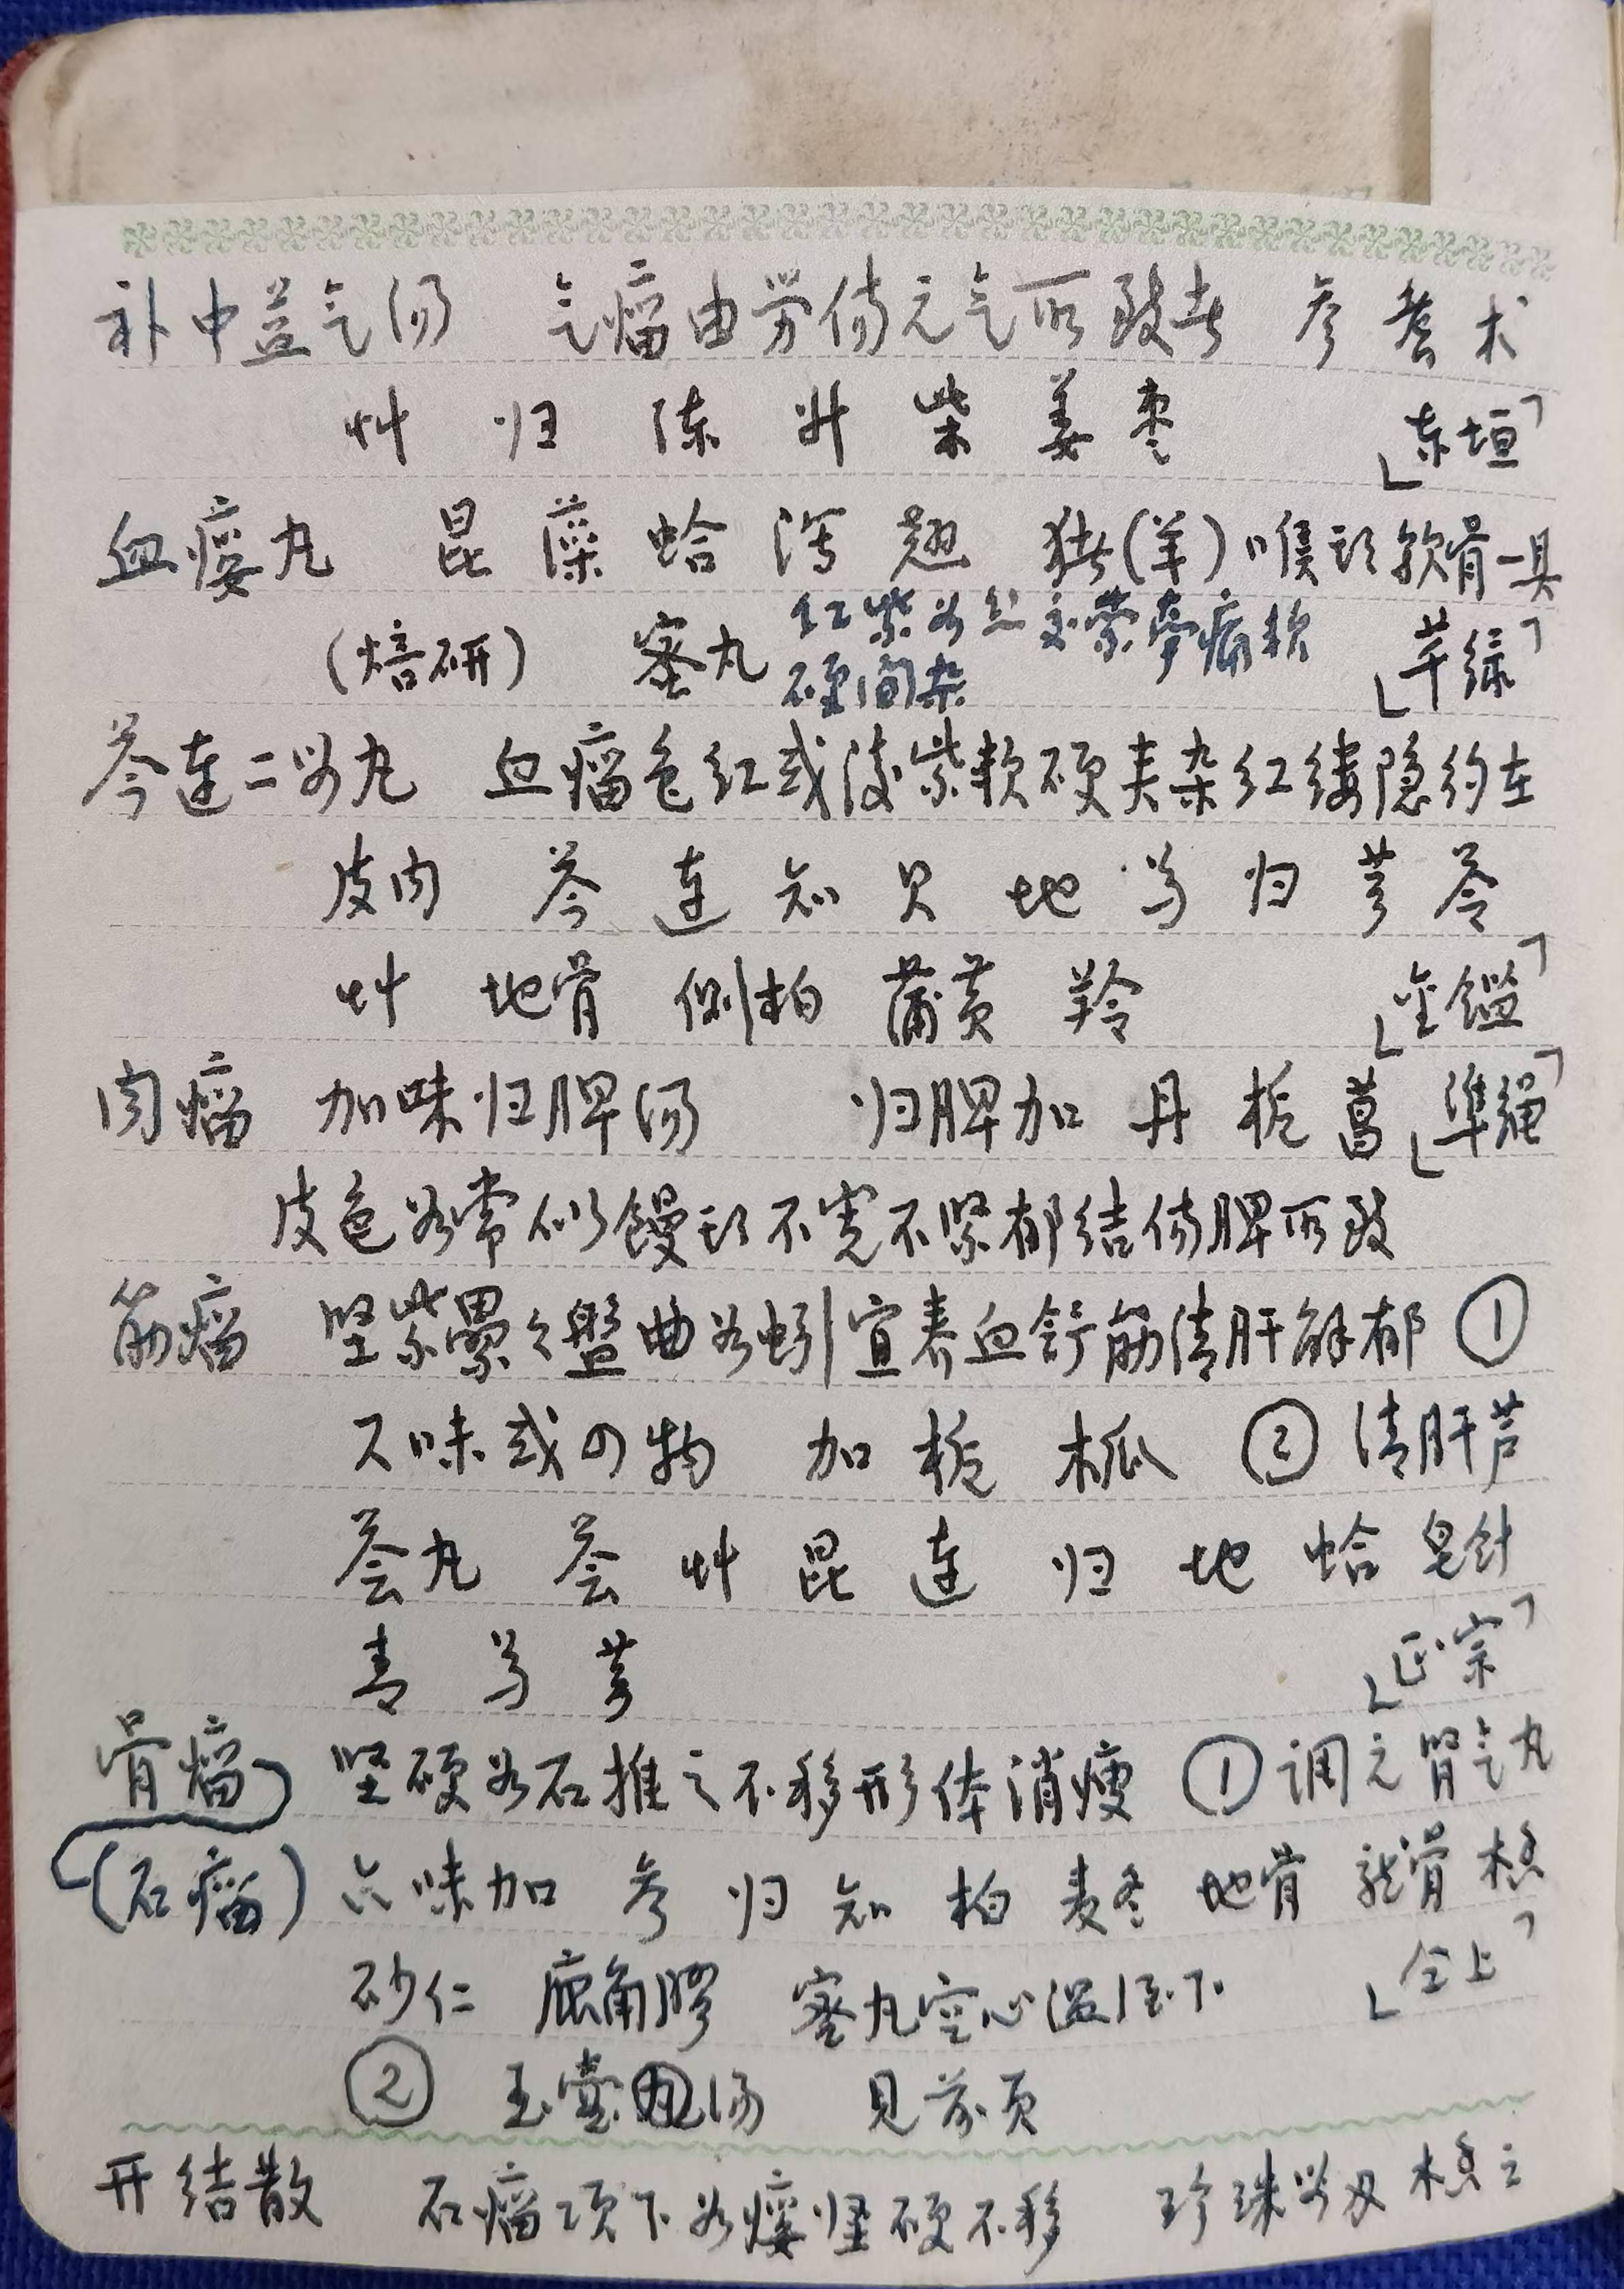 补中益气汤 气瘤由劳伤元气所致者 参 耆 术
艸 归 陈 升 柴 姜 枣 「东垣」
血瘿丸 昆 藻 蛤 泻 翘 猪(羊)喉头软骨一具
(焙研) 蜜丸 「萃绿」
红紫如丝 萦牵痛软
硬间杂
芩连二母丸 血瘤色红或淡紫软硬夹杂红缕隐约在
皮肉 芩 连 知 贝 地 芍 归 芎 苓
艸 地骨 侧柏 蒲黄 羚 「金鑑」
肉瘤 加味归脾汤 归脾加 丹 栀 菖 「準绳」
皮色如常似馒头不宽不紧郁结伤脾所致
筋瘤 坚紫累々盤曲如蚓宜养血舒筋清肝解郁 ①
六味或四物 加 栀 木瓜 ② 清肝芦
荟丸 荟 艸 昆 连 归 地 蛤 皂针
青 芍 芎 「正宗」
骨瘤 坚硬如石推之不移形体消瘦 ① 调元肾气丸
(石瘤) 六味加 参 归 知 柏 麦冬 地骨 龙骨 木香
砂仁 鹿角膠 蜜丸空心温酒下 「仝上」
② 玉壶丸汤 见前页
开结散 石瘤项下如瘿坚硬不移 珍珠 木香二